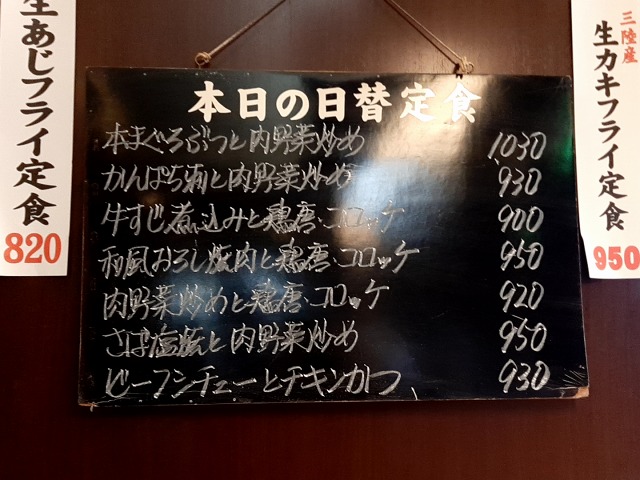 生あじフライ定食
820
本日の日替定食
本まぐろぶつと肉野菜炒め 1030
かんぱち刺と肉野菜炒め 930
牛すじ煮込みと鶏唐・コロッケ 900
和風おろし豚肉と鶏唐・コロッケ 950
肉野菜炒めと鶏唐・コロッケ 920
さば塩焼と肉野菜炒め 950
ビーフシチューとチキンかつ 930
三陸産
生カキフライ定食
950